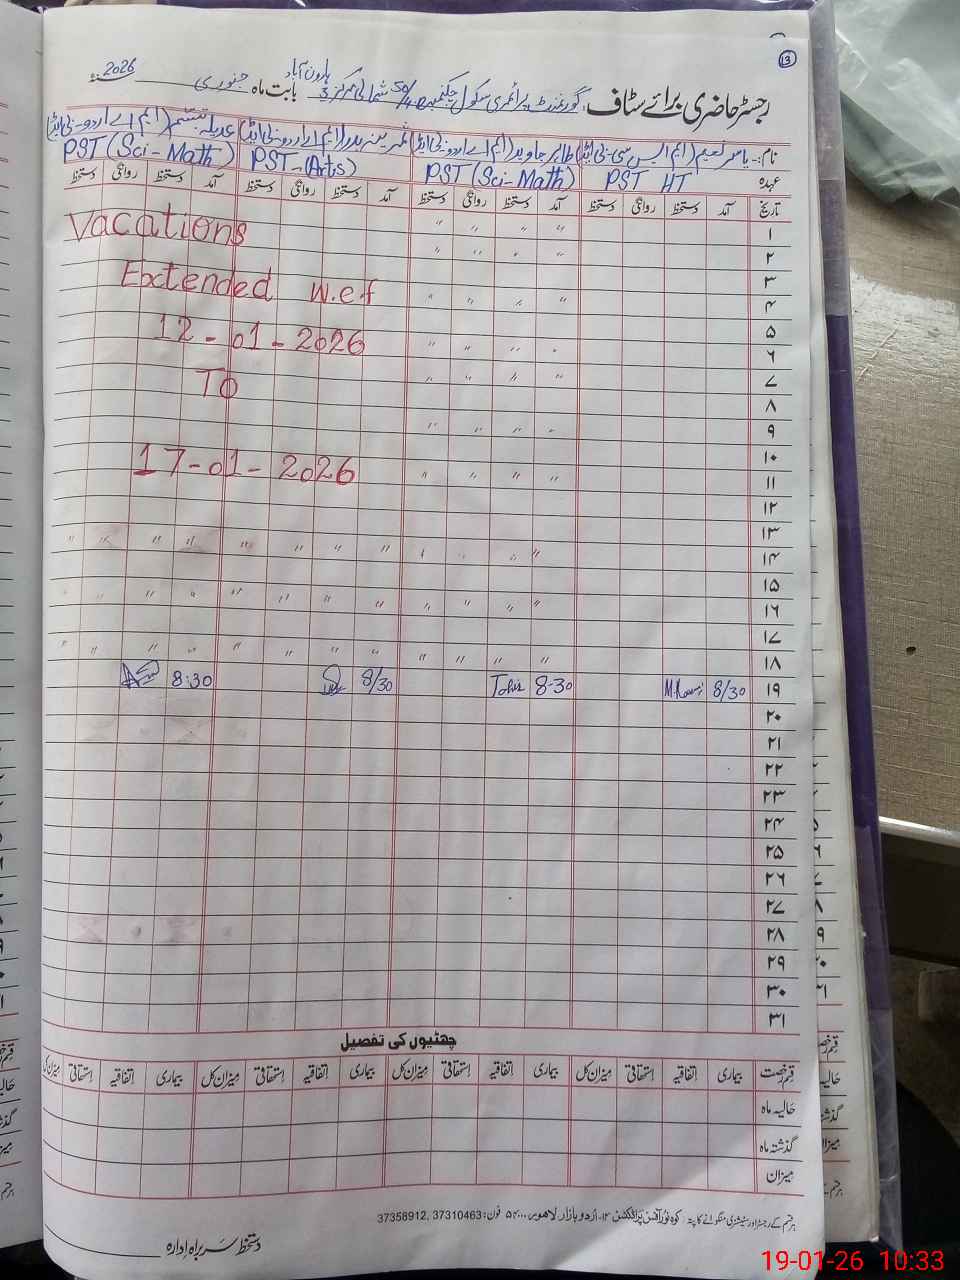 ۱۳
رجسٹر حاضری برائے سٹاف گورنمنٹ پرائمری سکول چکنمبر 50/4 شمالی مرکز 3 ہارون آباد بابت ماہ جنوری 2026
نام:- یاسر نعیم (ایم ایس سی-بی ایڈ) طاہر جاوید (ایم اے اردو-بی ایڈ) (ایم اے اردو-بی ایڈ) عدیلہ تبسم (ایم اے اردو-بی ایڈ)
عہدہ PST HT PST (Sci-Math) PST-(Arts) PST (Sci-Math)
تاریخ آمد دستخط روانگی دستخط آمد دستخط روانگی دستخط آمد دستخط روانگی دستخط آمد دستخط روانگی دستخط
۱
Vacations
۲
۳
Extended w.e.f
۴
۵
12-01-2026
۶
۷
TO
۸
۹
۱۰
17-01-2026
۱۱
۱۲
۱۳
۱۴
۱۵
۱۶
۱۷
۱۸
۱۹ 8/30 Tahir 8-30 8/30 8:30
۲۰
۲۱
۲۲
۲۳
۲۴
۲۵
۲۶
۲۷
۲۸
۲۹
۳۰
۳۱
چھٹیوں کی تفصیل
قسم رخصت بیماری اتفاقیہ استحقاقی میزان کل بیماری اتفاقیہ استحقاقی میزان کل بیماری اتفاقیہ استحقاقی میزان کل بیماری اتفاقیہ استحقاقی میزان کل
حالیہ ماہ
گذشتہ ماہ
میزان
ہر قسم کے رجسٹر اور سٹیشنری منگوانے کا پتہ کوہ نور آفس پراڈکٹس ۱۴-اُردو بازار لاہور ۵۴۰۰۰ فون: 37310463, 37358912
دستخط سربراہ ادارہ
19-01-26 10:33